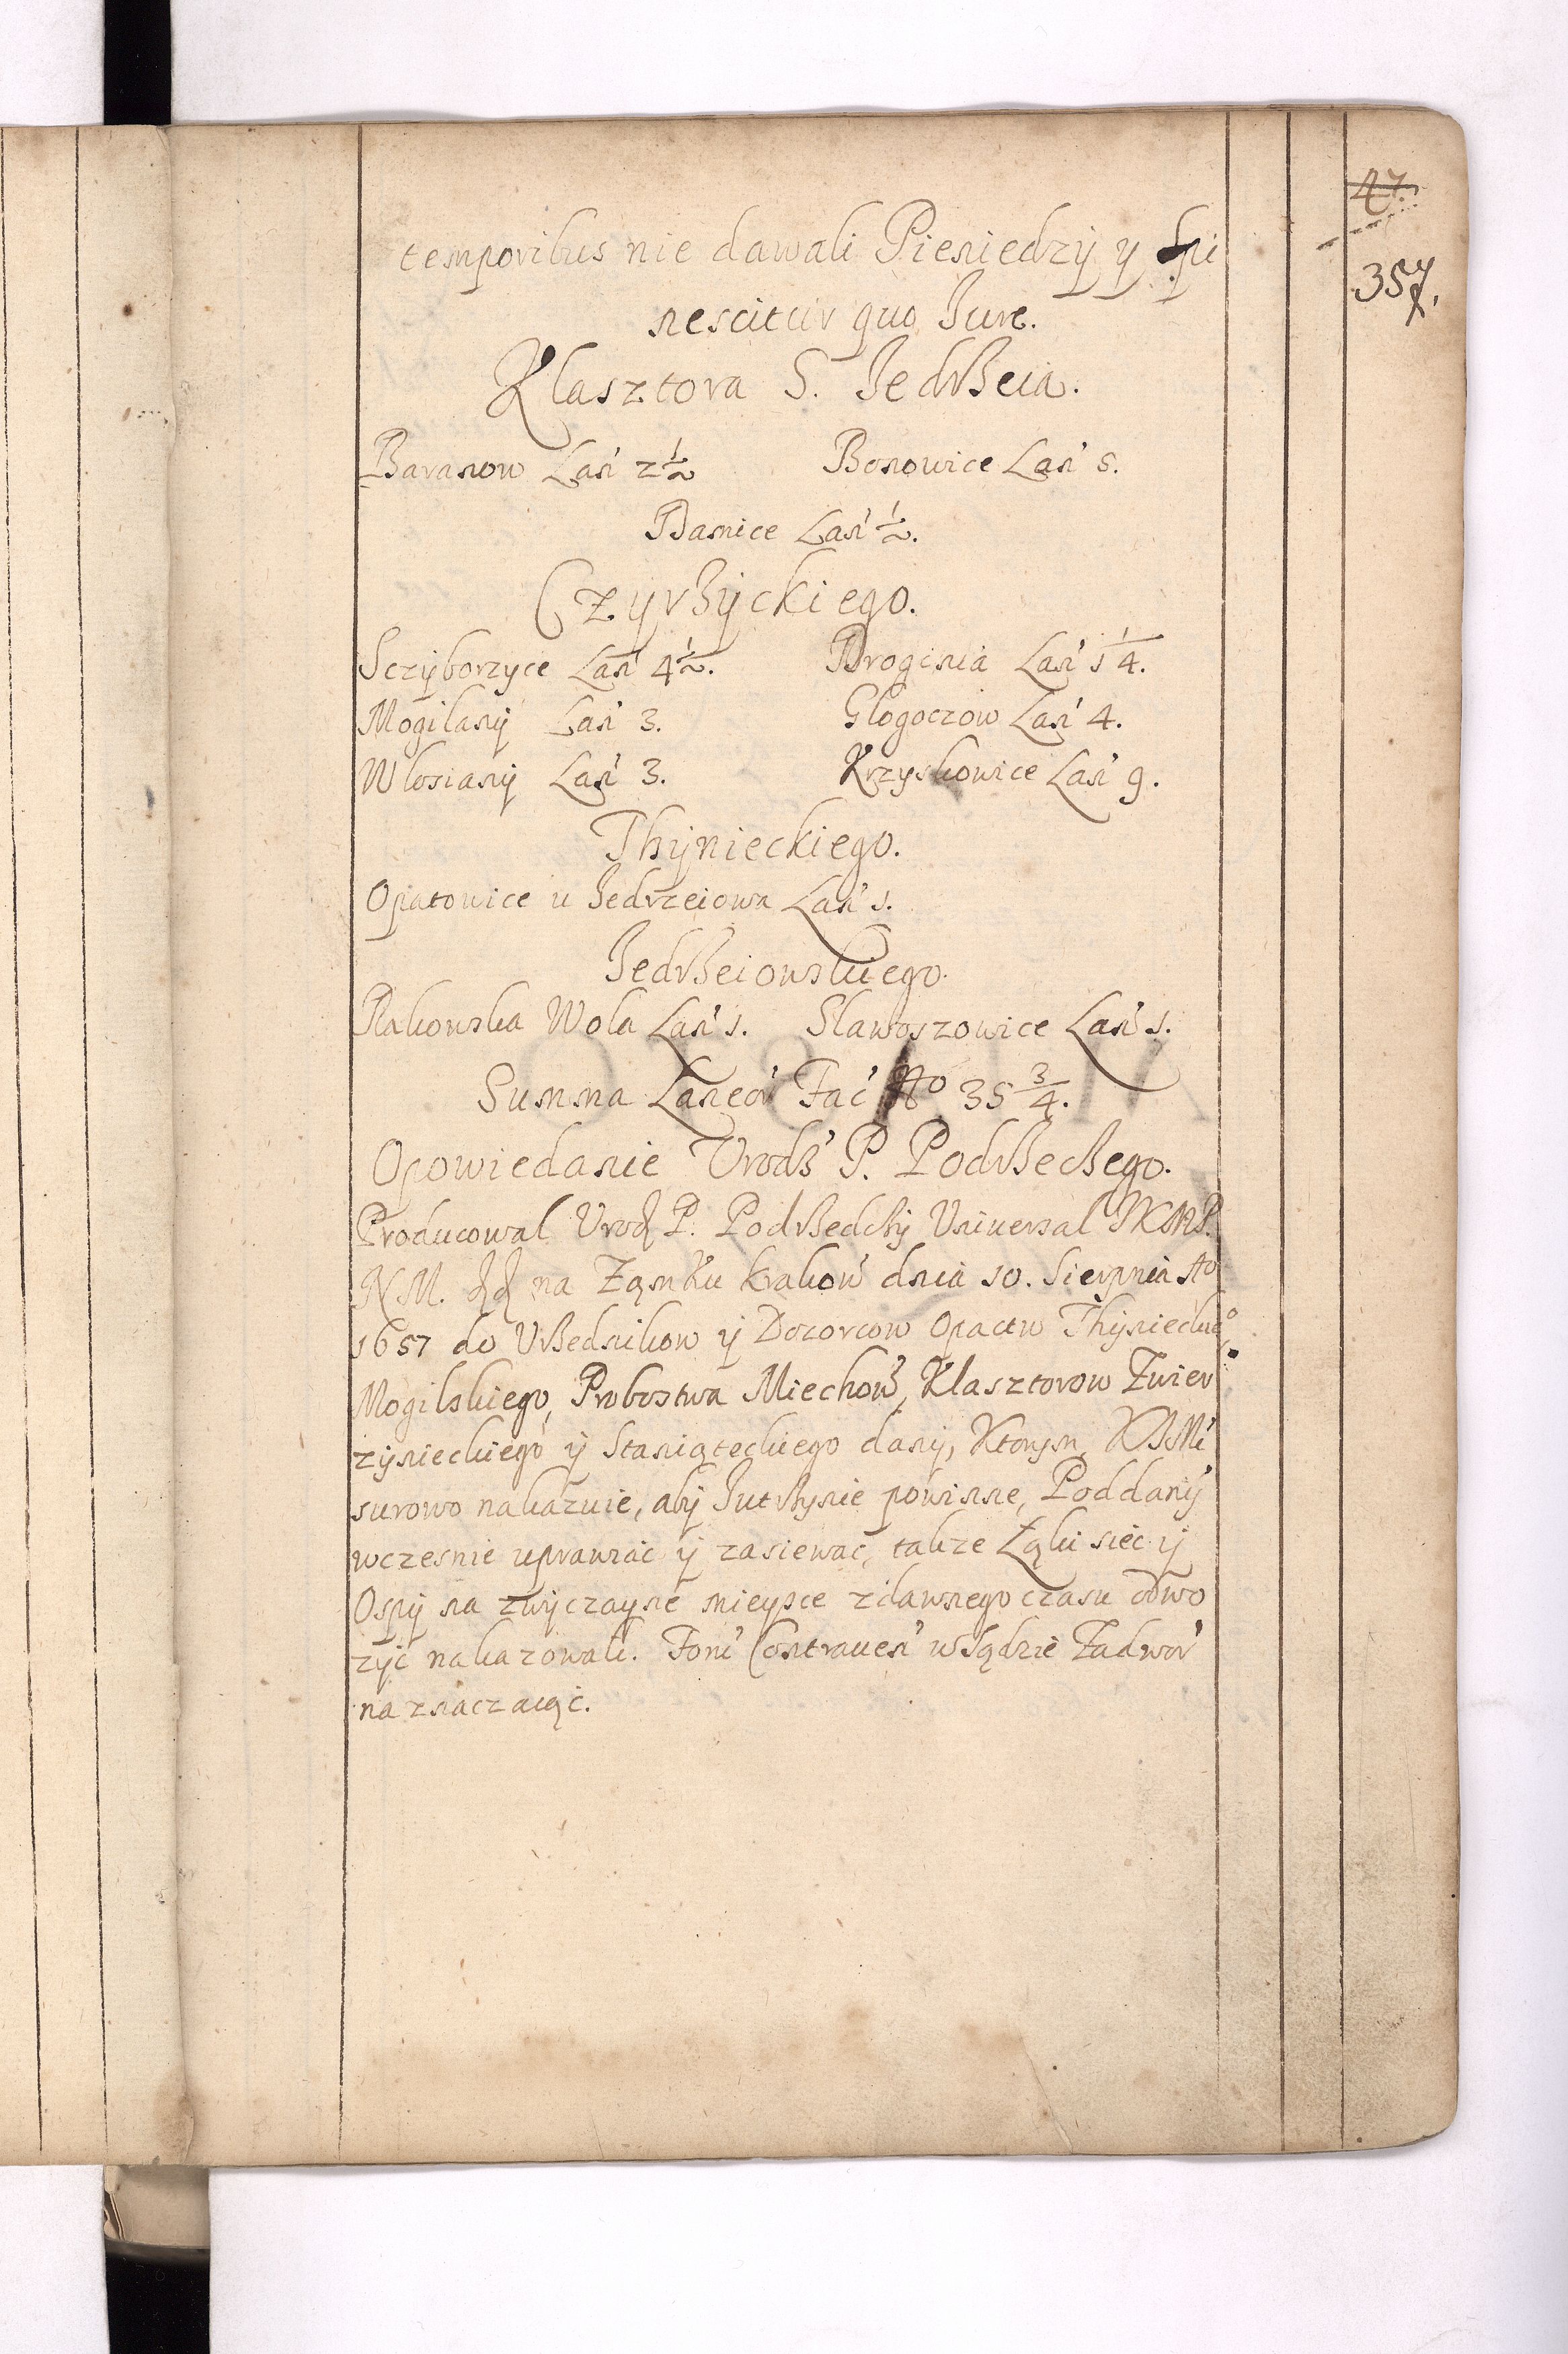 47.
357.
temporibus nie dawali Pieniedzÿ y Spi
nescitur quo Jure.
Klasztora S. Jedrzeia.
Baranow Łan' 2 1/2 Bonowice Łan' 5.
Damice Łan' 1/2.
Czyrzÿckiego.
Sczÿborzyce Łan' 4 1/2. Droginia Łan' 1 1/4.
Mogilanÿ Łan' 3. Glogoczow Łan' 4.
Wlosianÿ Łan' 3. Krzyskowice Łan' 9.
Thÿnieckiego.
Opatowice u Jedrzeiowa Łan' 1.
Jedrzeiowskiego.
Rakowska Wola Łan' 1. Slawoszowice Łan' 1.
Summa Łaneow Fac' No 35 3/4.
Opowiedanie Urodz' P. Podrzeckego.
Producowal Urodz P. Podrzedckÿ Uniuersal JKMP.
N. M. na Ząmku krakow' dnia 10. Sierpnia Ao
1657 do Urzednikow ÿ Dozorcow Opactw Thÿnieckiego
Mogilskiego, Probostwa Miechow', Klasztorow Zwier
zÿnieckiego ÿ Staniąteckiego danÿ, Ktorym KJMć
surowo nakazuie, abÿ Jutrzÿnie powinne, Poddanÿ
wczesnie uprawiać ÿ zasiewać, takze Łąki siec ÿ
Ospÿ na zwÿczayne mieysce zdawnego czasu odwo
zÿć nakazowali. Fori Contrauen' w Sądzie Zadwor'
naznaczaiąc.